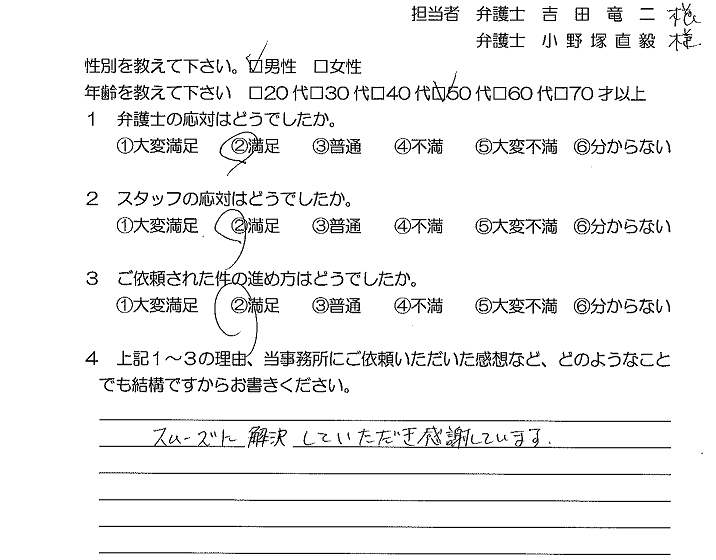 担当者 弁護士 吉田竜二 様
弁護士 小野塚直毅 様
性別を教えて下さい。☑男性 □女性
年齢を教えて下さい □20代□30代□40代☑50代□60代□70才以上
1 弁護士の応対はどうでしたか。
①大変満足 ②満足 ③普通 ④不満 ⑤大変不満 ⑥分からない
2 スタッフの応対はどうでしたか。
①大変満足 ②満足 ③普通 ④不満 ⑤大変不満 ⑥分からない
3 ご依頼された件の進め方はどうでしたか。
①大変満足 ②満足 ③普通 ④不満 ⑤大変不満 ⑥分からない
4 上記1～3の理由、当事務所にご依頼いただいた感想など、どのようなこと
でも結構ですからお書きください。
スムーズに解決していただき感謝しています。